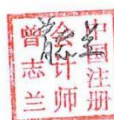 中国注册
会计师
曾志兰